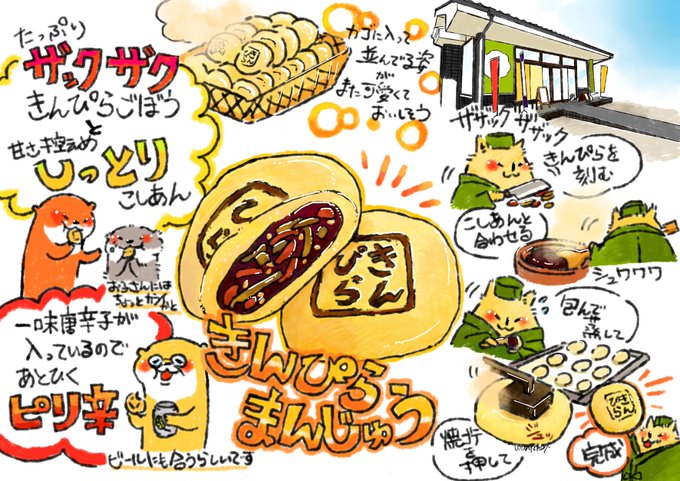 たっぷり
ザックザク
きんぴらごぼう
と
甘さ控えめ
しっとり
こしあん
カゴに入って
並んでる姿
が
また可愛くて
おいしそう
ザザック ザザック
きんぴらを
刻む
こしあんと
合わせる
シュワワワ
包んで
蒸して
焼ゴテ
を
押して
きんぴら
完成
きんぴら
きんぴら
まんじゅう
おぅさんには
ちょっとカライと
一味唐辛子が
入っているので
あとひく
ピリ辛
ビールにも合うらしいです